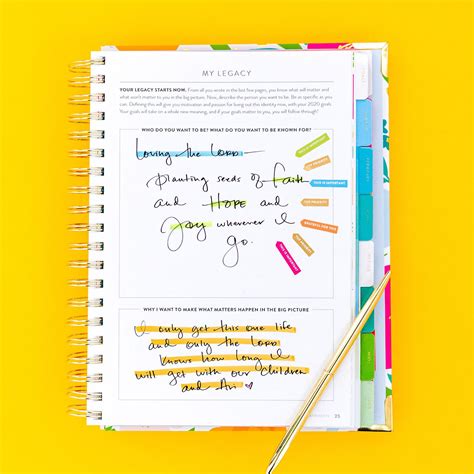 MY LEGACY
YOUR LEGACY STARTS NOW. From all you wrote in the last five pages, you know what will matter and
what won't matter to you in the big picture. Now, describe the person you want to be. Be as specific as you
can. Defining this will give you motivation and passion for living out this identity now, with your 2020 goals.
Your goals will take on a whole new meaning, and if your goals matter to you, you will follow through!
WHO DO YOU WANT TO BE? WHAT DO YOU WANT TO BE KNOWN FOR?
Loving the LORD —
Planting seeds of faith
and HOPE and
Joy wherever I
go.
THIS IS IMPORTANT
GRATEFUL FOR THIS
WHY I WANT TO MAKE WHAT MATTERS HAPPEN IN THE BIG PICTURE
I only get this one life
and only the LORD
knows how long I
will get with our children
and Ari ♥
25